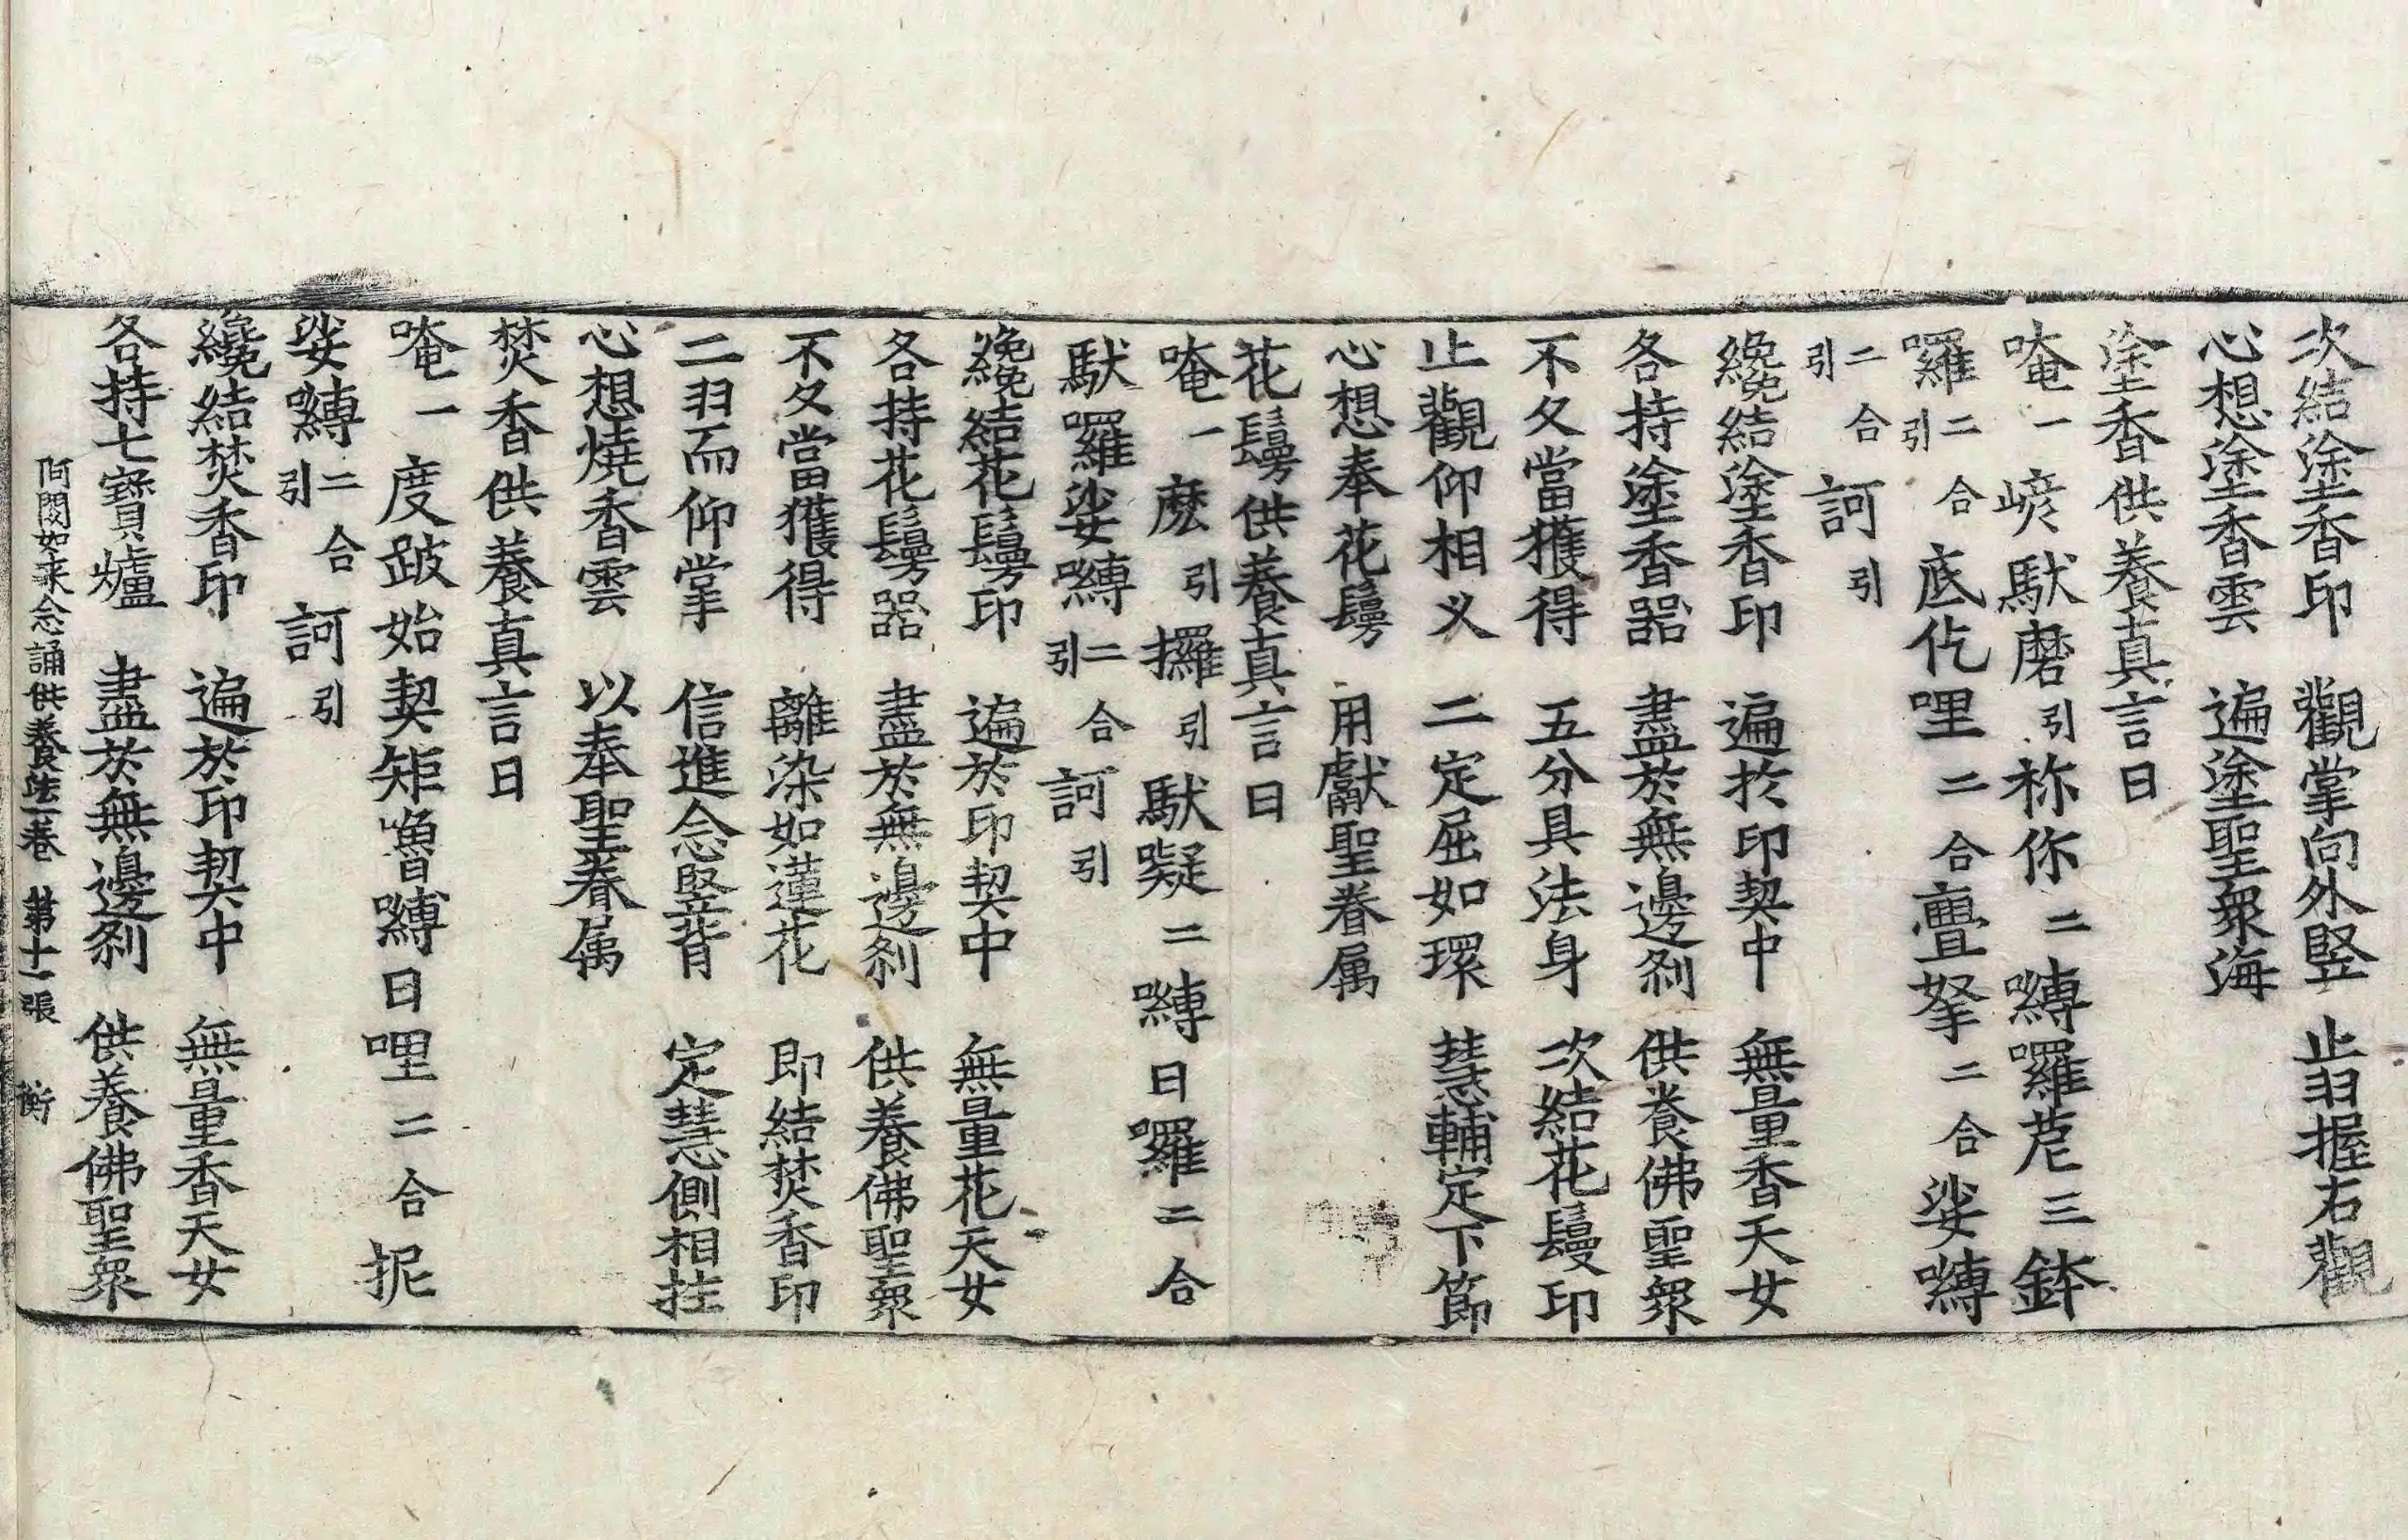 次結塗香印　觀掌向外竪　止羽握右觀
心想塗香雲　遍塗聖眾海
塗香供養真言曰
唵一巘馱磨引祢你二嚩羅茊三鉢
囉二合引底仡哩二合亹拏二合娑嚩
二合引訶引
纔結塗香印　遍於印契中　無量香天女
各持塗香器　盡於無邊剎　供養佛聖眾
不久當獲得　五分具法身　次結花鬘印
止觀仰相叉　二定屈如環　慧輔定下節
心想奉花鬘　用獻聖眷属
花鬘供養真言曰
唵一麽引攞引馱礙二嚩日囉二合
馱囉娑嚩二合引訶引
纔結花鬘印　遍於印契中　無量花天女
各持花鬘器　盡於無邊剎　供養佛聖眾
不久當獲得　離染如蓮花　即結焚香印
二羽而仰掌　信進念竪背　定慧側相拄
心想燒香雲　以奉聖眷属
焚香供養真言曰
唵一度跛始契矩嚕嚩日哩二合抳
娑嚩二合引訶引
纔結焚香印　遍於印契中　無量香天女
各持七寶爐　盡於無邊剎　供養佛聖眾
阿閦如来念誦供養法一卷　第十一張　衡